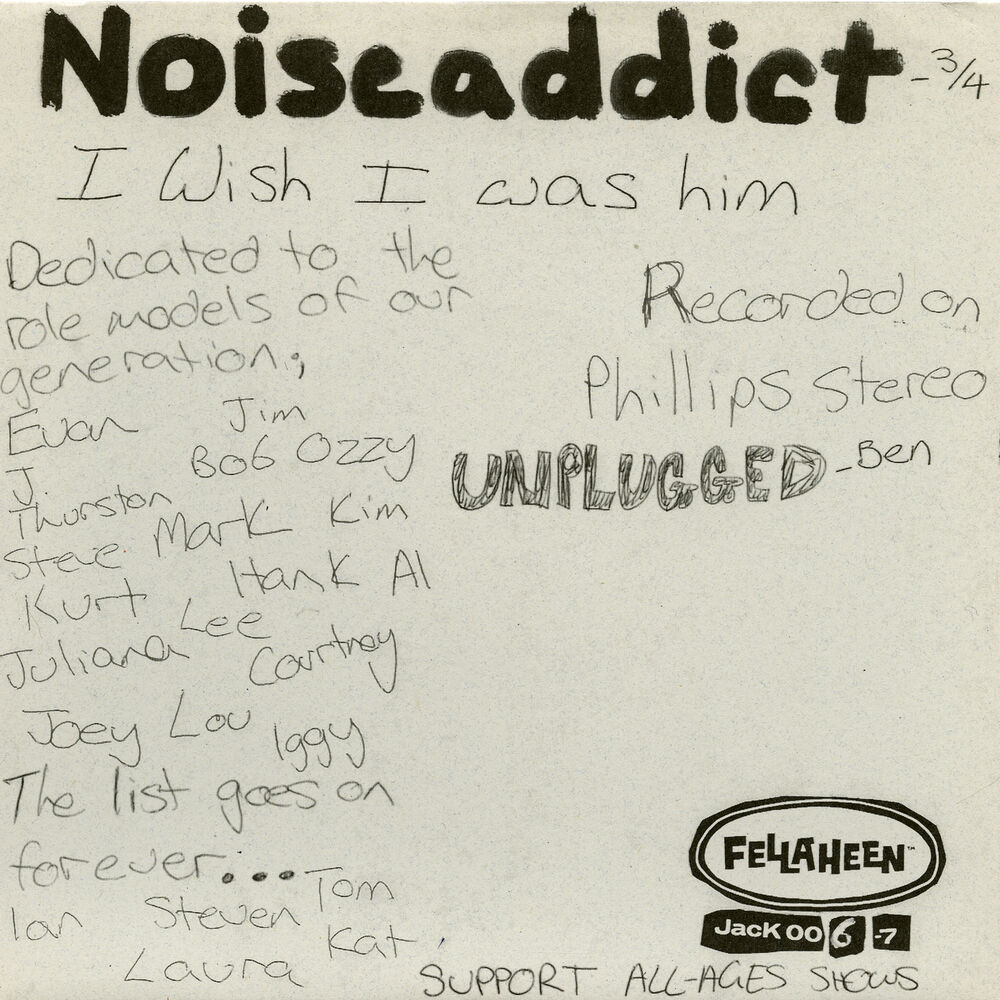 Noiseaddict -3/4
I Wish I was him
Dedicated to the
role models of our
generation;
Evan Jim
J. Bob Ozzy
Thurston
Steve Mark Kim
Kurt Hank Al
Juliana Lee
Courtney
Joey Lou Iggy
The list goes on
forever... Tom
Ian Steven
Laura Kat
Recorded on
Phillips Stereo
UNPLUGGED -Ben
FELLAHEEN™
Jack 006-7
SUPPORT ALL-AGES SHOWS